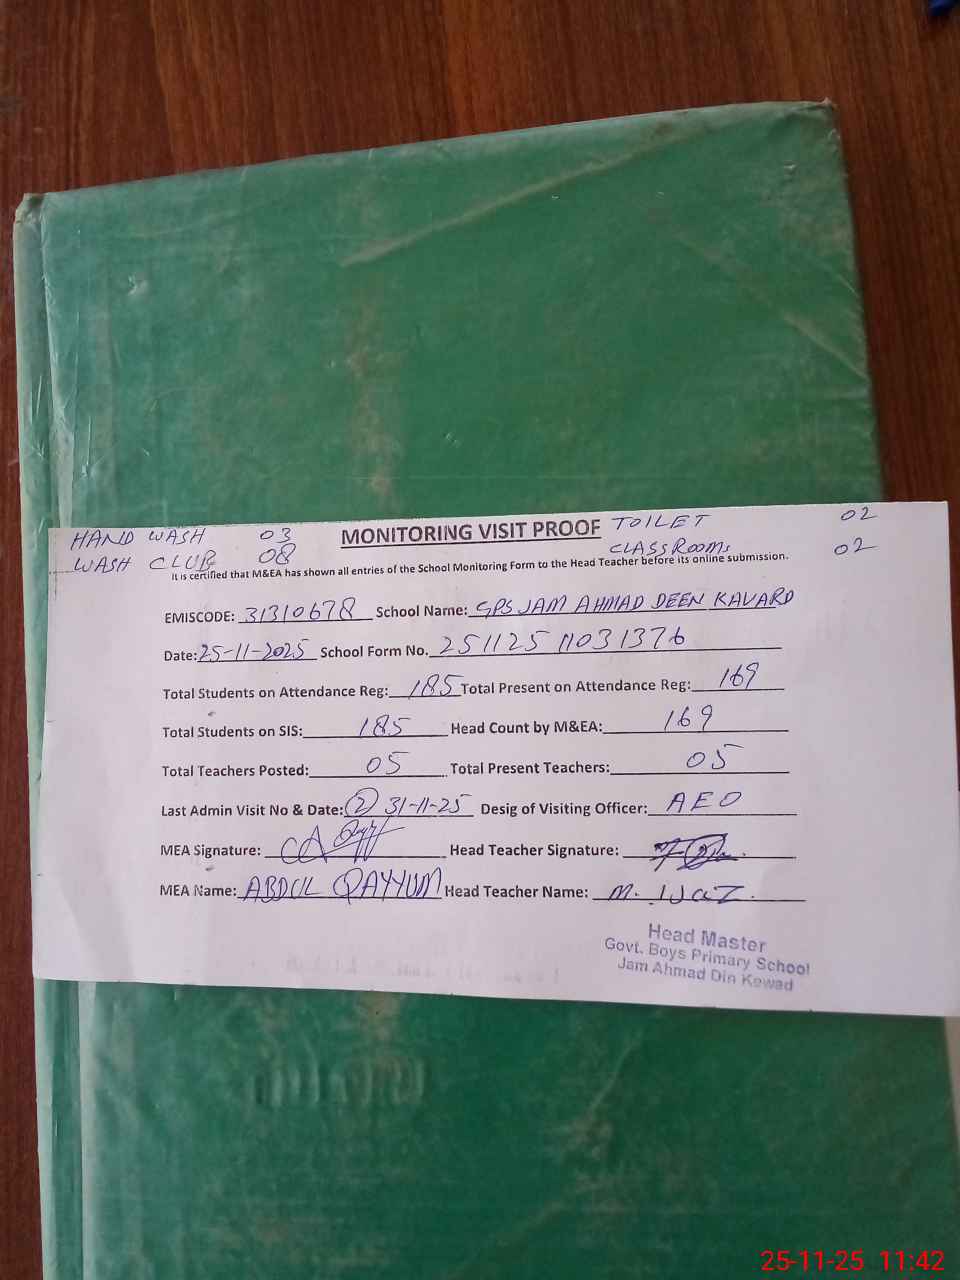 HAND WASH 03 MONITORING VISIT PROOF TOILET 02
WASH CLUB 08 CLASSROOMS 02
It is certified that M&EA has shown all entries of the School Monitoring Form to the Head Teacher before its online submission.
EMISCODE: 31310678 School Name: GPS JAM AHMAD DEEN KAVARD
Date: 25-11-2025 School Form No. 251125 11031376
Total Students on Attendance Reg: 185 Total Present on Attendance Reg: 169
Total Students on SIS: 185 Head Count by M&EA: 169
Total Teachers Posted: 05 Total Present Teachers: 05
Last Admin Visit No & Date: (2) 31-11-25 Desig of Visiting Officer: AEO
MEA Signature: Head Teacher Signature:
MEA Name: ABDUL QAYYUM Head Teacher Name: M.
Head Master
Govt. Boys Primary School
Jam Ahmad Din Kewad
25-11-25 11:42